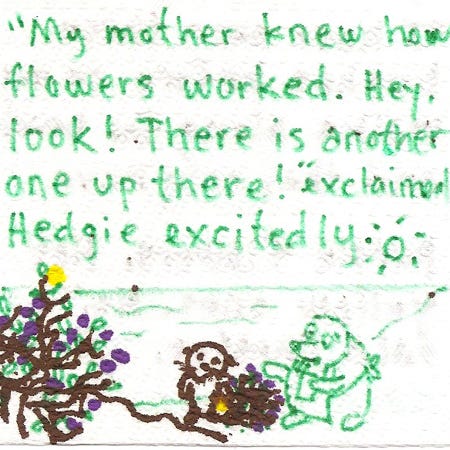 "My mother knew how
flowers worked. Hey,
look! There is another
one up there!" exclaimed
Hedgie excitedly.